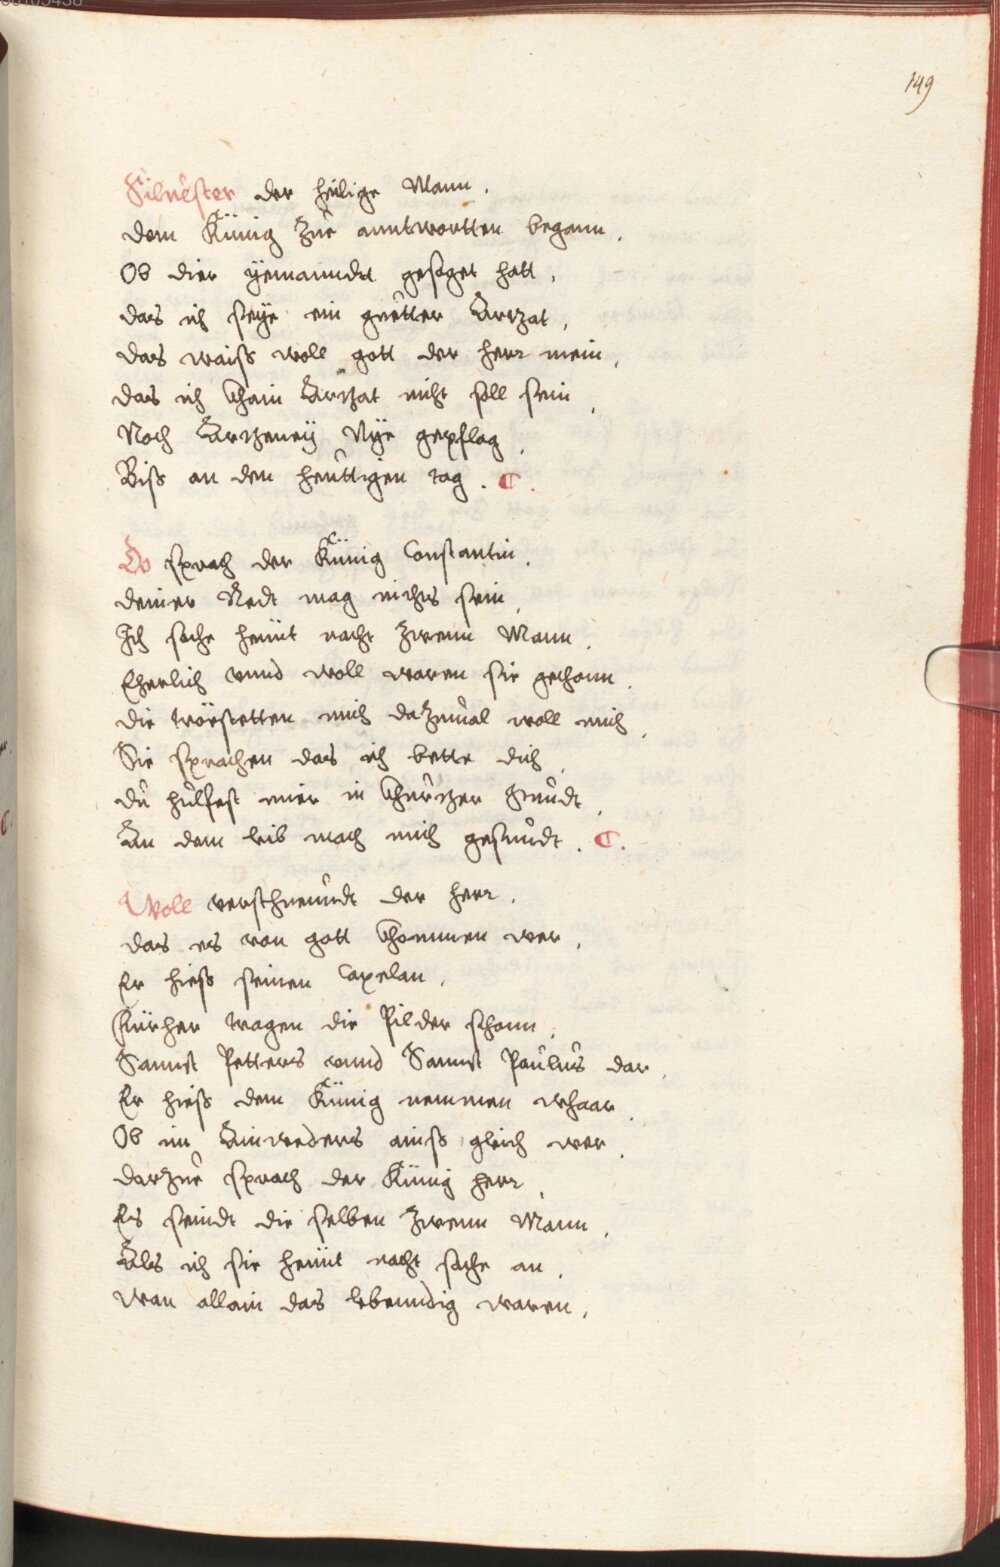 149
Silvester der heilige Mann.
dem Künig Zue anntwortten begann.
Ob dier yemanndt gesaget hatt,
das ich seye ein guetter Artzat,
das waiss woll gott der herr mein,
das ich khain Artzat nicht soll sein,
Noch Artzeney Nye gepflag,
Biss an den heuttigen tag. C.
Do sprach der Künig Constantin.
deiner Redt mag nichts sein,
Ich sache heunt nacht zwenn Mann,
Eherlich vnnd woll waren sie gethonn,
die trösstetten mich dazumal woll mich,
Sie sprachen das ich bette dich,
du hulfest mier in khurtzer stundt,
An dem leib mach mich gesundt. C.
Woll verschneundt der herr.
das es von gott khommen wer,
Er hiess seinen Capelan,
Fürher tragen die Pilder schonn,
Sannct Petters vnnd Sannct Paulus dar,
Er hiess dem Künig nemmen whaar,
Ob im Ainweders ainss gleich wer,
darzue sprach der Künig herr,
Es seindt die selben zwenn Mann,
Als ich sie heunt nacht sache an,
wan allain das lebenndig waren,